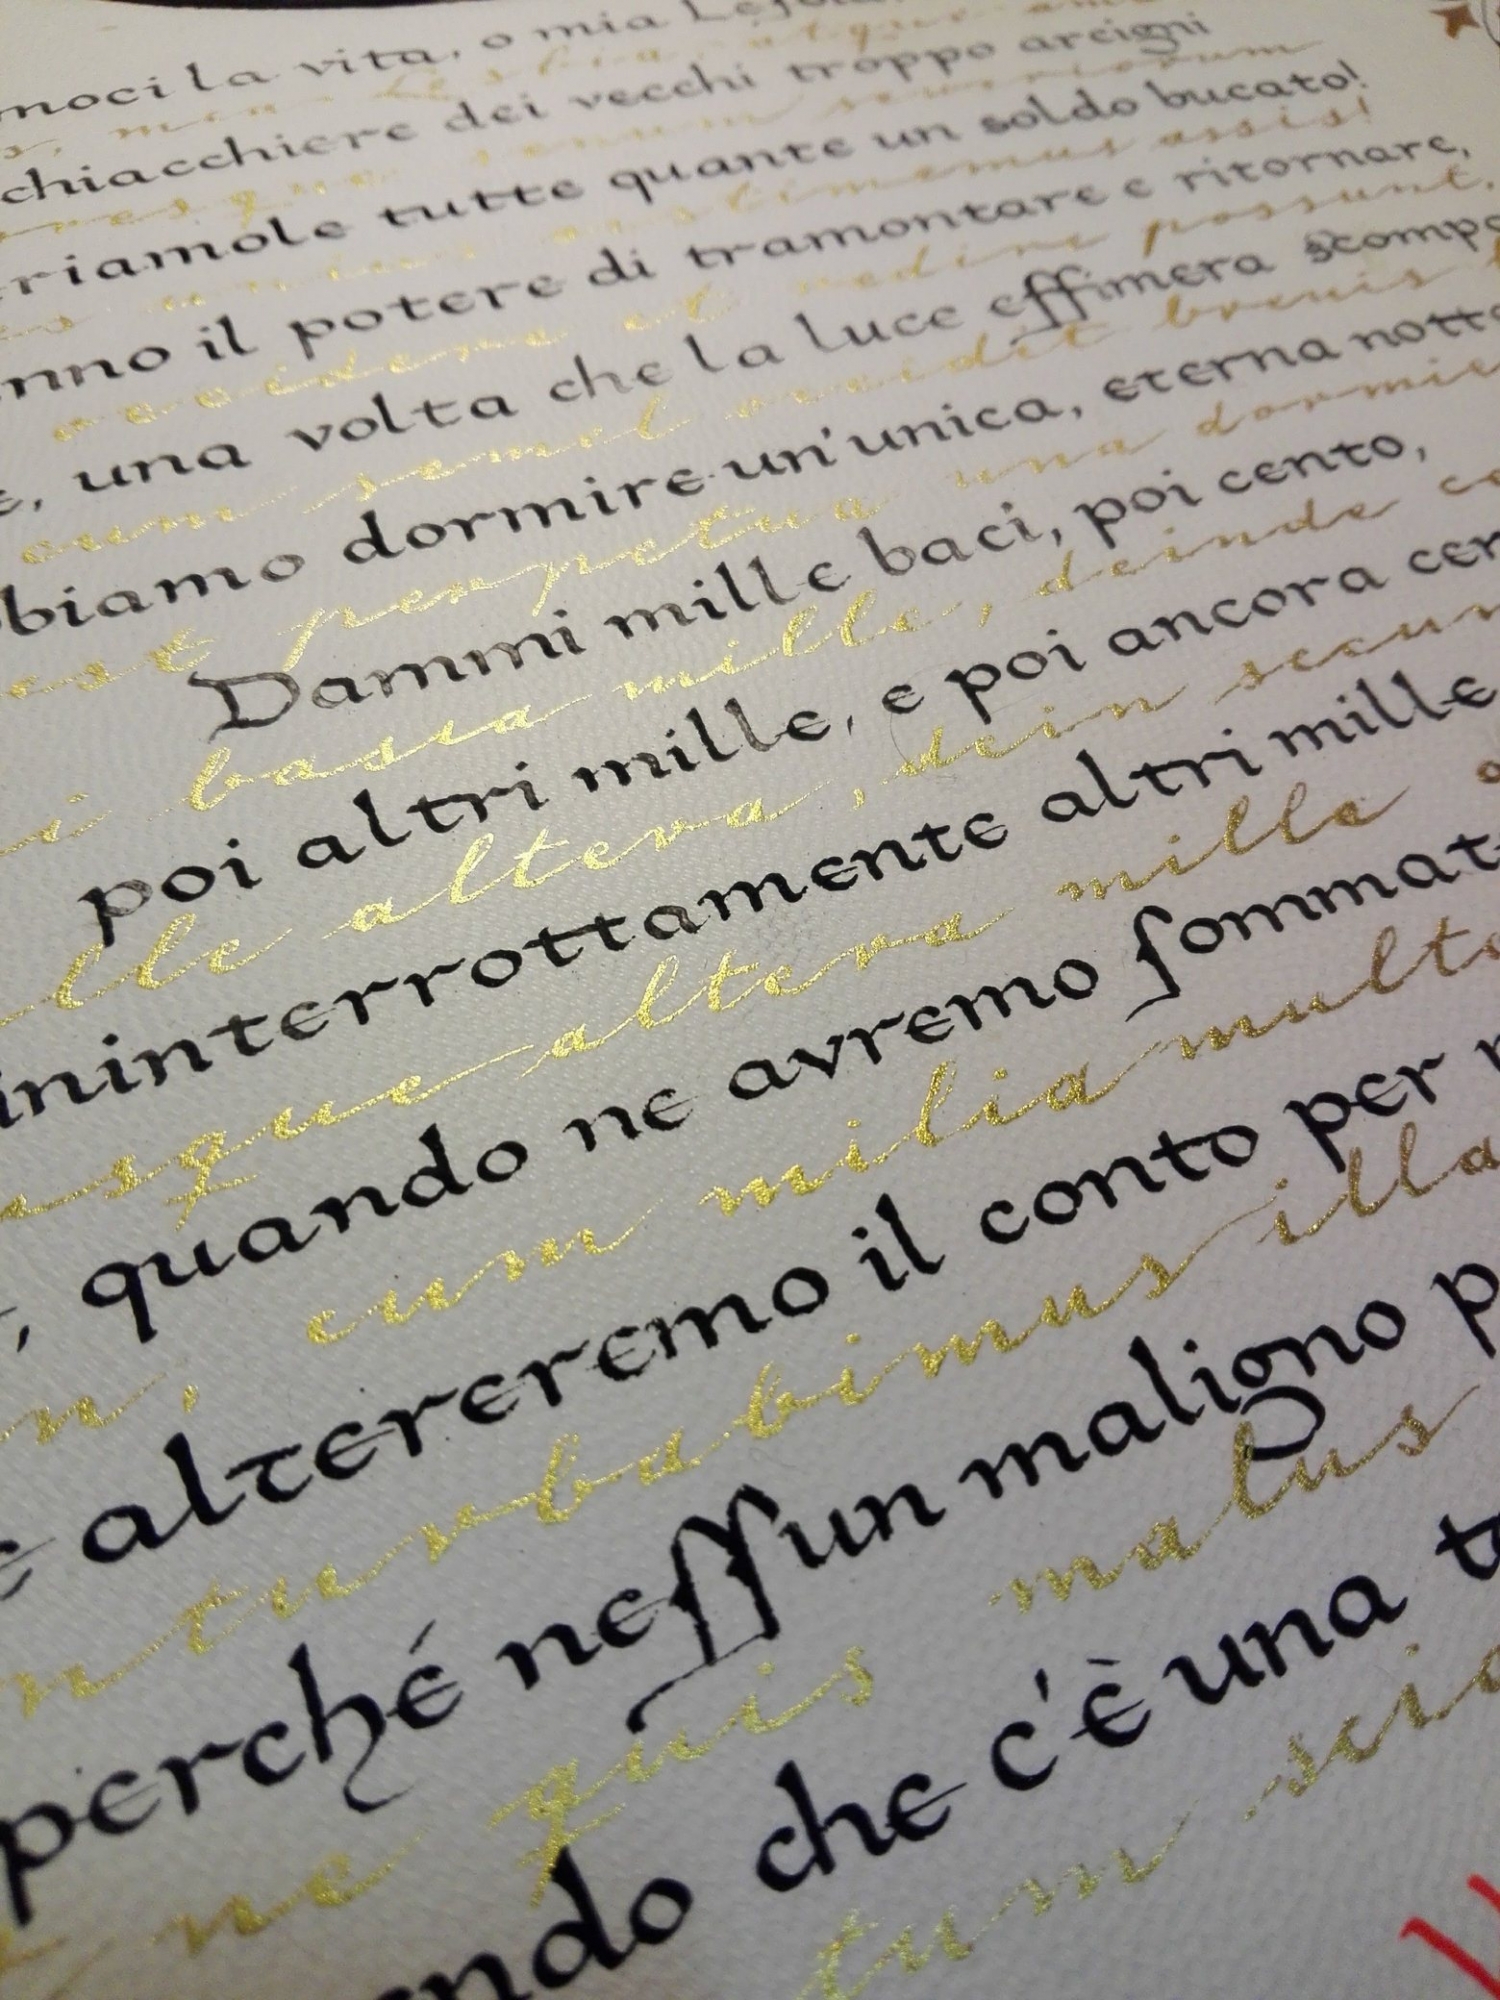 moci la vita, o mia Lesbia
mea Lesbia, atque ame
chiacchiere dei vecchi troppo arcigni
resque senum severiorum
riamole tutte quante un soldo bucato!
es unius aestimemus assis!
nno il potere di tramontare e ritornare,
occidere et redire possunt,
e, una volta che la luce effimera scompa
cum semel occidit brevis
biamo dormire un'unica, eterna notte
est perpetua una dormie
Dammi mille baci, poi cento,
i basia mille, deinde ce
poi altri mille, e poi ancora cen
lle altera, dein secun
ininterrottamente altri mille
usque altera mille
, quando ne avremo ſommat
n, cum milia multa
e altereremo il conto per n
nturbabimus illa
perché neſſun maligno p
ne quis malus
ndo che c'è una t
tum scia